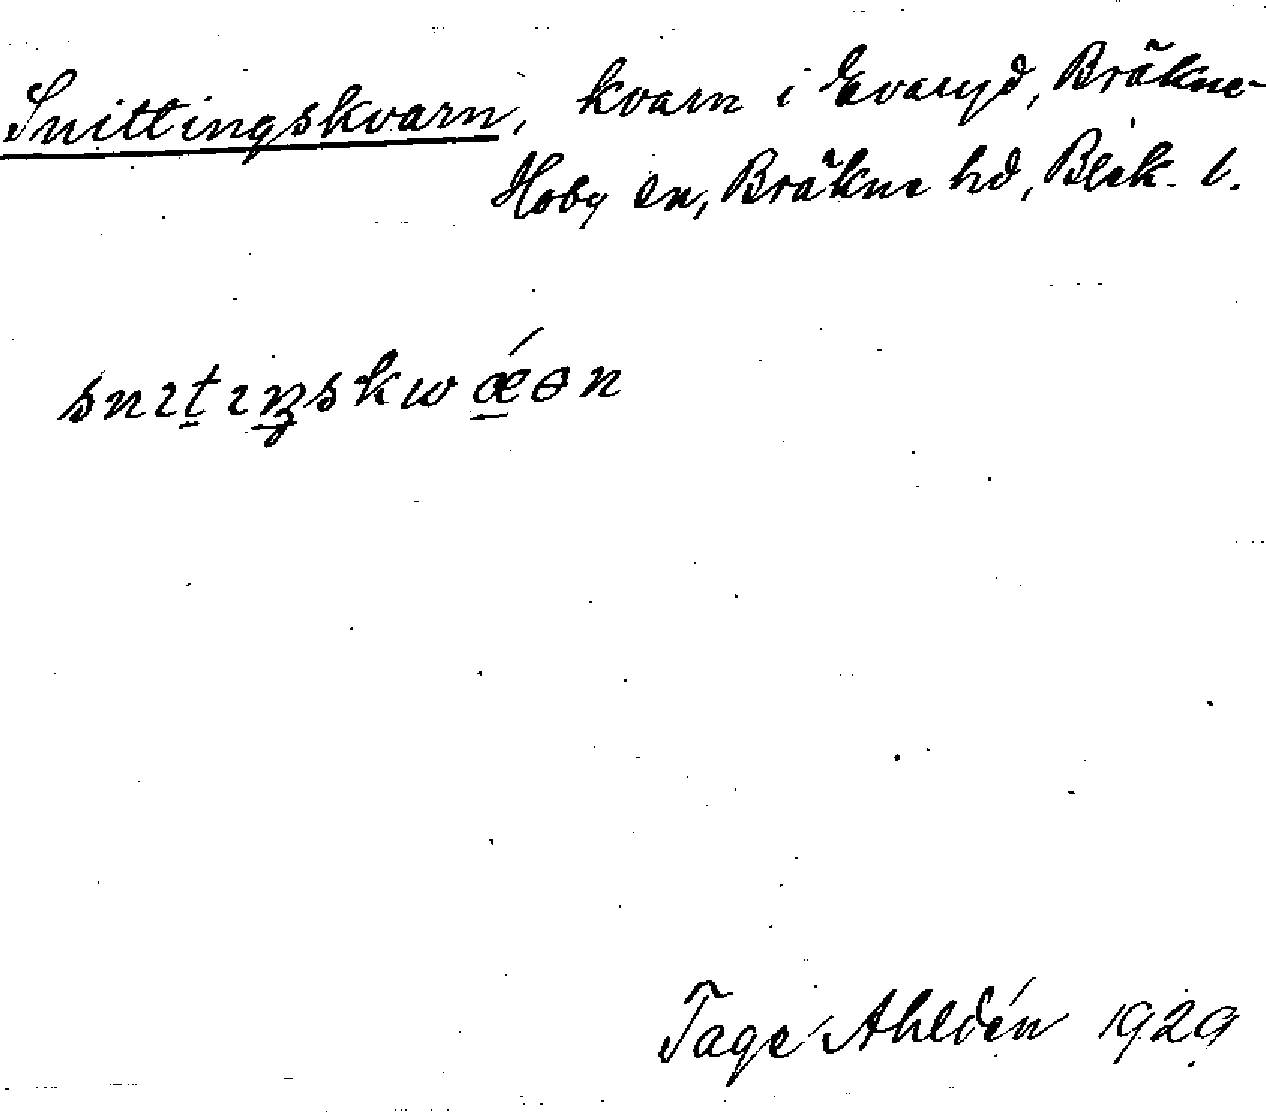 Snittingskvarn, kvarn i Evaryd, Bräkne-
Hoby sn, Bräkne hd, Blek. l.
snɪt̠ɪŋskwǽ̠ən
Tage Ahldén 1929